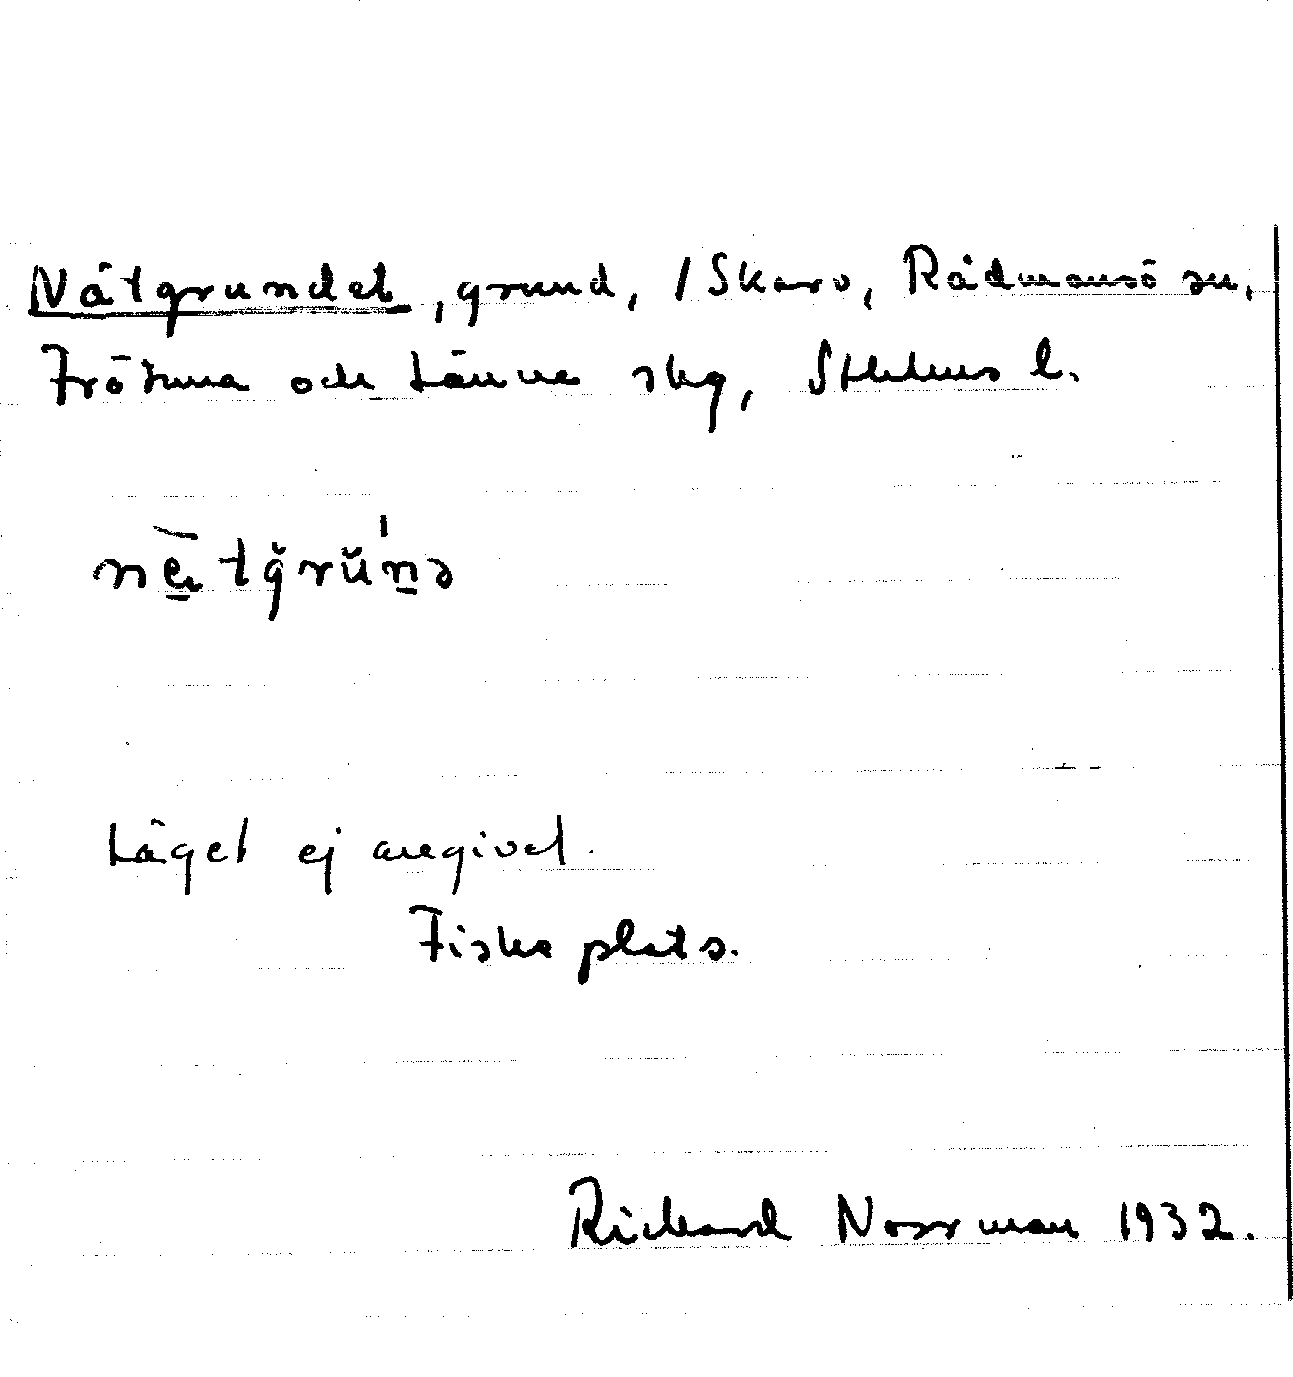 Nätgrundet, grund, /Skarv, Rådmansö sn,
Frötuna och Länna skg, Sthlms l.
nètgrŭ́nə
Läget ej angivet.
Fiskeplats.
Richard Norrman 1932.